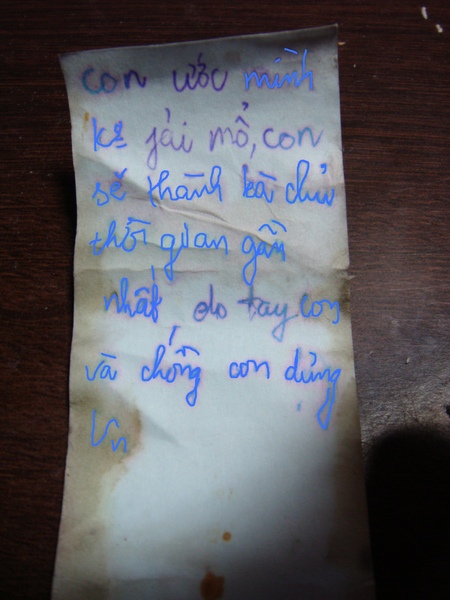 con ước mình
ko jải mổ, con
sẽ thành bà chủ
thời gian gần
nhất, do tay con
và chồng con dựng
lên